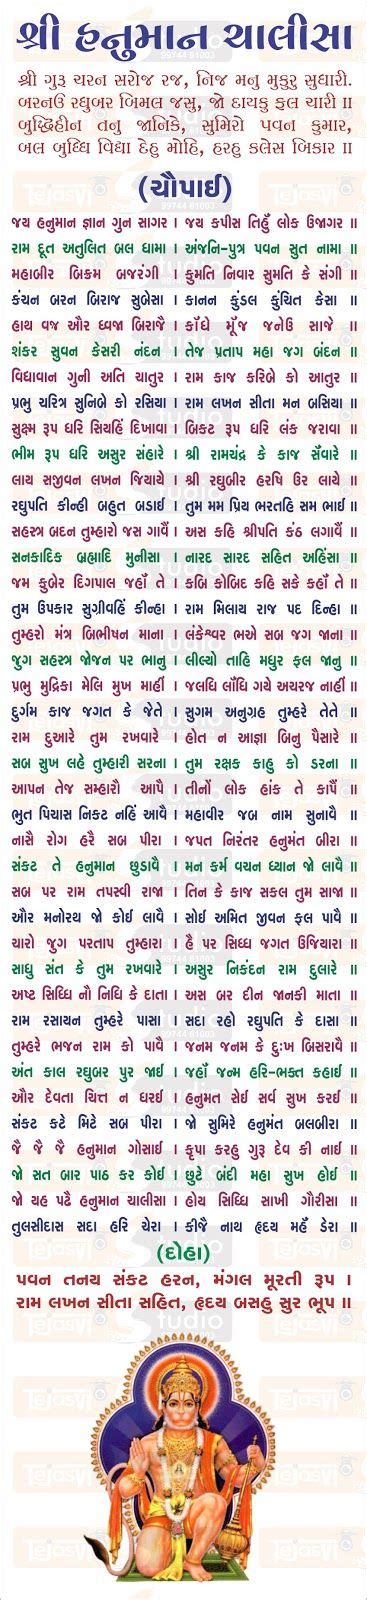 શ્રી હનુમાન ચાલીસા
શ્રી ગુરૂ ચરન સરોજ રજ, નિજ મનુ મુકુરુ સુધારી.
બરનઉ રઘુબર બિમલ જસુ, જો દાયકુ ફલ ચારી ॥
બુદ્ધિહીન તનુ જાનિકે, સુમિરો પવન કુમાર,
બલ બુધ્ધિ વિદ્યા દેહુ મોહિ, હરહુ કલેસ બિકાર ॥
(ચૌપાઈ)
જય હનુમાન જ્ઞાન ગુન સાગર । જય કપીસ તિહુઁ લોક ઉજાગર ॥
રામ દૂત અતુલિત બલ ધામા । અંજનિ-પુત્ર પવન સુત નામા ॥
મહાબીર બિકમ બજરંગી । કુમતિ નિવાર સુમતિ કે સંગી ॥
કંચન બરન બિરાજ સુબેસા । કાનન કુંડલ કુંચિત કેસા ॥
હાથ વજ્ર ઔર ધ્વજા બિરાજૈ । કાઁધે મૂઁજ જનેઉ સાજે ॥
શંકર સુવન કેસરી નંદન । તેજ પ્રતાપ મહા જગ બંદન ॥
વિદ્યાવાન ગુની અતિ ચાતુર । રામ કાજ કરિબે કો આતુર ॥
પ્રભુ ચરિત્ર સુનિબે કો રસિયા । રામ લખન સીતા મન બસિયા ॥
સુક્ષ્મ રૂપ ધરિ સિયહિં દિખાવા । બિકટ રૂપ ધરિ લંક જરાવા ॥
ભીમ રૂપ ધરિ અસુર સંહારે । શ્રી રામચંદ્ર કે કાજ સઁવારે ॥
લાય સજીવન લખન જિયાયે । શ્રી રઘુબીર હરષિ ઉર લાયે ॥
રઘુપતિ કીન્હી બહુત બડાઈ । તુમ મમ પ્રિય ભરતહિ સમ ભાઈ ॥
સહસ્ત્ર બદન તુમ્હારો જસ ગાવૈં । અસ કહિ શ્રીપતિ કંઠ લગાવૈં ॥
સનકાદિક બ્રહ્માદિ મુનીસા । નારદ સારદ સહિત અહિંસા ॥
જમ કુબેર દિગપાલ જહાઁ તે । કબિ કોબિદ કહિ સકે કહાઁ તે ॥
તુમ ઉપકાર સુગ્રીવહિં કીન્હા । રામ મિલાય રાજ પદ દિન્હા ॥
તુમ્હરો મંત્ર બિભીષન માના । લંકેશ્વર ભએ સબ જગ જાના ॥
જુગ સહસ્ત્ર જોજન પર ભાનુ । લીલ્યો તાહિ મધુર ફલ જાનુ ॥
પ્રભુ મુદ્રિકા મેલિ મુખ માહીં । જલધિ લાઁધિ ગયે અચરજ નાહીં ॥
દુર્ગમ કાજ જગત કે જેતે । સુગમ અનુગ્રહ તુમ્હરે તેતે ॥
રામ દુઆરે તુમ રખવારે । હોત ન આજ્ઞા બિનુ પૈસારે ॥
સબ સુખ લહે તુમ્હારી સરના । તુમ રક્ષક કાહુ કો ડરના ॥
આપન તેજ સમ્હારૌ આપૈ । તીનોં લોક હાંક તે કાઁપૈ ॥
ભુત પિચાસ નિકટ નહિં આવૈ । મહાવીર જબ નામ સુનાવૈ ॥
નાસૈ રોગ હરૈ સબ પીરા । જપત નિરંતર હનુમંત બીરા ॥
સંકટ તે હનુમાન છુડાવૈ । મન કર્મ વચન ધ્યાન જો લાવૈ ॥
સબ પર રામ તપસ્વી રાજા । તિન કે કાજ સકલ તુમ સાજા ॥
ઔર મનોરથ જો કોઈ લાવૈ । સોઈ અમિત જીવન ફલ પાવૈ ॥
ચારો જુગ પરતાપ તુમ્હારા । હૈ પર સિધ્ધ જગત ઉજિયારા ॥
સાધુ સંત કે તુમ રખવારે । અસુર નિકંદન રામ દુલારે ॥
અષ્ટ સિધ્ધિ નૌ નિધિ કે દાતા । અસ બર દીન જાનકી માતા ॥
રામ રસાયન તુમ્હરે પાસા । સદા રહો રઘુપતિ કે દાસા ॥
તુમ્હરે ભજન રામ કો પાવૈ । જનમ જનમ કે દુઃખ બિસરાવૈ ॥
અંત કાલ રઘુબર પુર જાઈ । જહાઁ જન્મ હરિ-ભક્ત કહાઈ ॥
ઔર દેવતા ચિત્ત ન ધરઈ । હનુમત સેઈ સર્વ સુખ કરઈ ॥
સંકટ કટે મિટે સબ પીરા । જો સુમિરે હનુમંત બલબીરા ॥
જૈ જૈ જૈ હનુમાન ગોસાઈ । કૃપા કરહુ ગુરૂ દેવ કી નાઈ ॥
જો સત બાર પાઠ કર કોઈ । છુટે બંદી મહા સુખ હોઈ ॥
જો યહ પઢૈ હનુમાન ચાલીસા । હોય સિધ્ધિ સાખી ગૌરીસા ॥
તુલસીદાસ સદા હરિ ચેરા । કીજૈ નાથ હૃદય મહઁ ડેરા ॥
(દોહા)
પવન તનય સંકટ હરન, મંગલ મૂરતી રૂપ ।
રામ લખન સીતા સહિત, હૃદય બસહુ સુર ભૂપ ॥